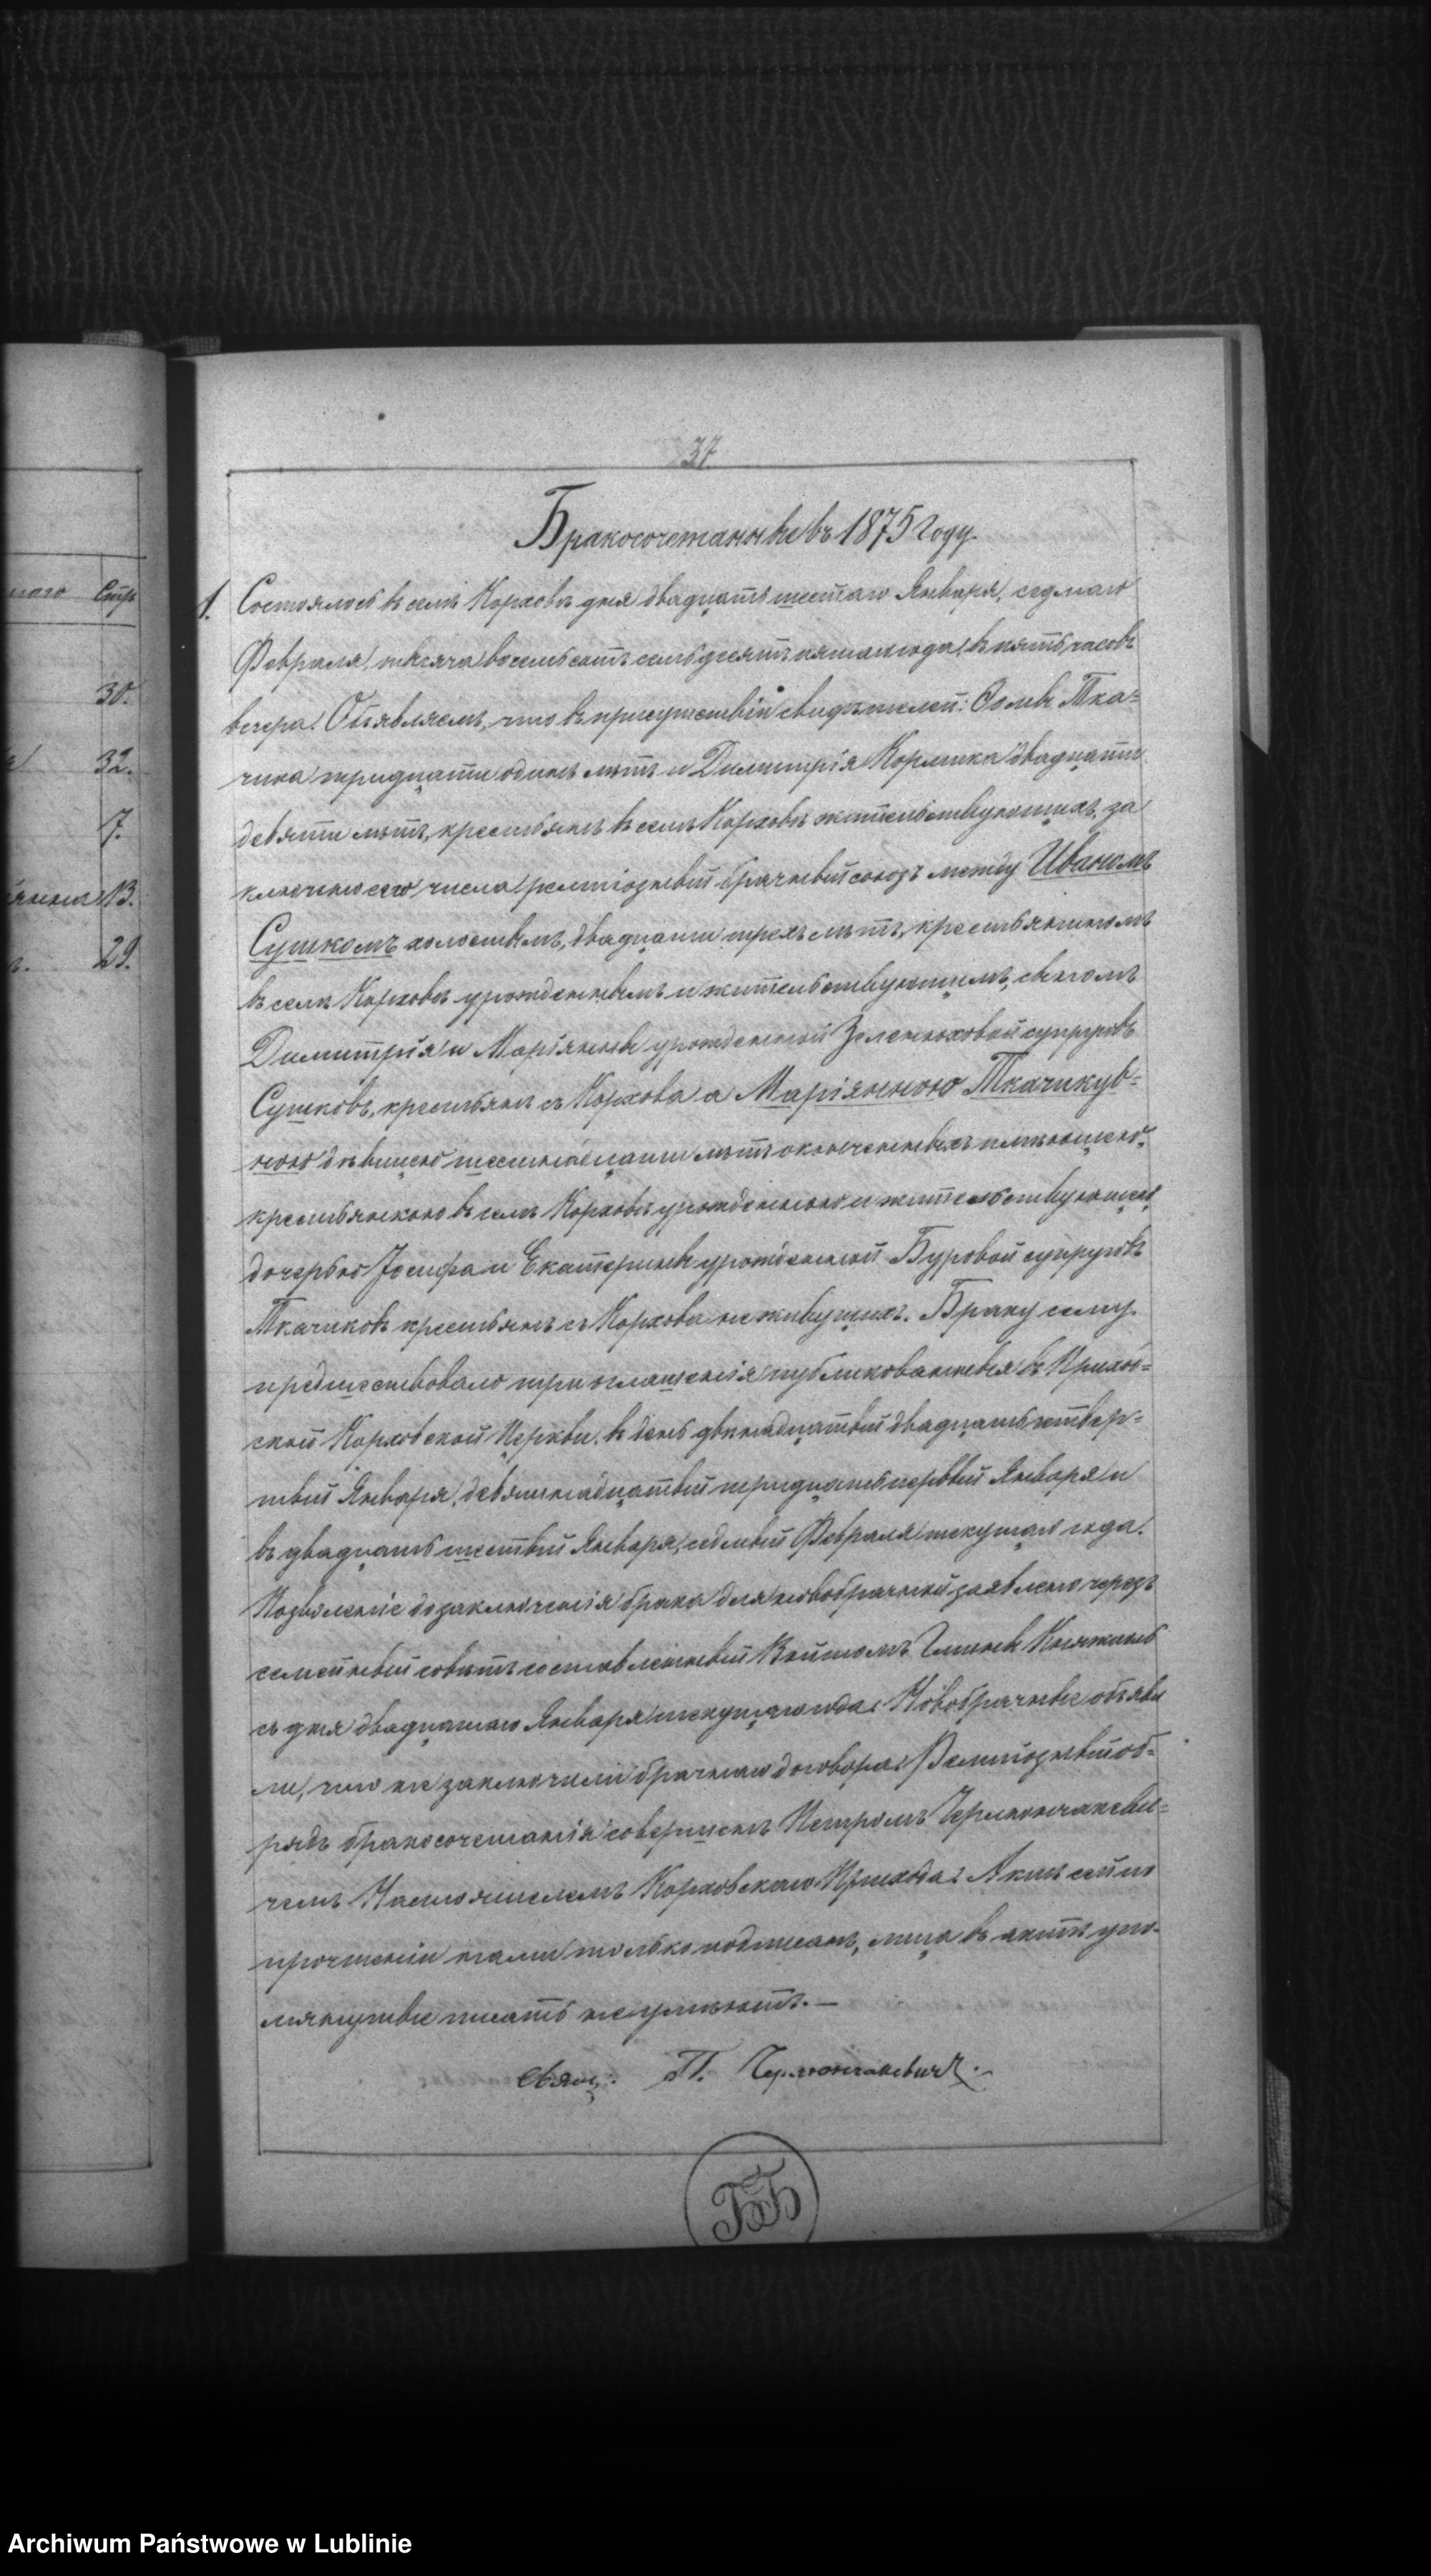 37
Бракосочетанныевъ 1875 году.
наго Стр
30.
32.
7.
13.
29.
1. Состоялось въ селѣ Корховѣ дня двадцать шестаго Января, седмаго
Февраля, тысяча восемьсотъ семьдесятъ пятаго года, въ пять часовъ
вечера. Объявляемъ, что въ присутствіи свидѣтелей: Ѳомы Тка=
чика тридцати одинъ лѣтъ и Димитрія Кормика двадцати
девяти лѣтъ, крестьянъ въ селѣ Корховѣ жительствующихъ, за
ключено сего числа религіозный брачный союзъ между Иваномъ
Сушкомъ холостымъ, двадцати трехъ лѣтъ, крестьяниномъ
въ селѣ Корховѣ урожденнымъ и жительствующимъ, сыномъ
Димитрія и Маріянны урожденной Зеленюховой супруговъ
Сушковъ, крестьянъ съ Корхова а Маріянною Ткачикув=
ною дѣвицею шестнадцати лѣтъ оконченныхъ имѣющею,
крестьянкою въ селѣ Корховѣ урожденною и жительствующею,
дочерью Іосифа и Екатерины урожденной Буровой супруговъ
Ткачиковъ крестьянъ съ Корхова не живущихъ. Браку сему
предшествовало три оглашенія публикованныя въ Приход=
ской Корховской Церкви, въ день двѣнадцатый двадцать четвер=
тый Января, девятнадцатый тридцать первый Января и
въ двадцать шестый Января, седмый Февраля текущаго года.
Позволеніе до заключенія брака для новобрачной заявлено черезъ
семейный совѣтъ составленный Войтомъ Гмины Княжполь
съ дня двадцатаго Января текущаго года. Новобрачные объяви
ли, что не заключили брачнаго договора. Религіозный об=
рядъ бракосочетанія совершенъ Петромъ Черлюнчакеви=
чемъ Настоятелемъ Корховскаго Прихода. Актъ сей по
прочтеніи нами только подписанъ, лица въ актѣ упо-
мянутые писать не умѣютъ. —
Свящ. П. Черлюнчакевичъ.
Archiwum Państwowe w Lublinie